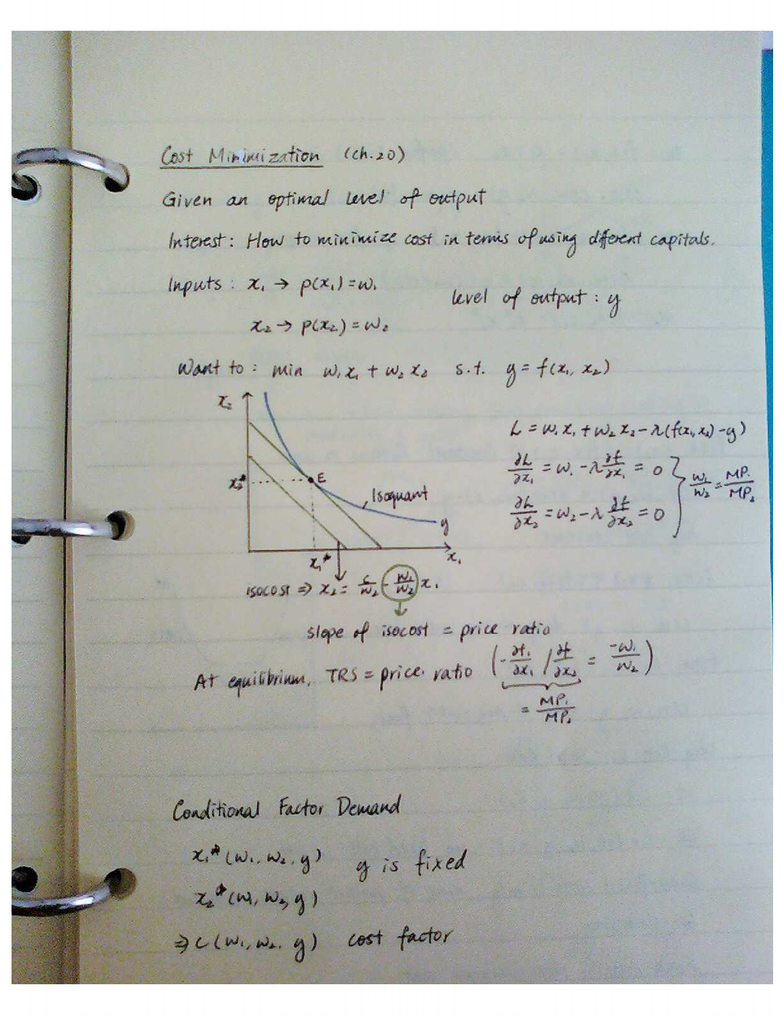 Cost Minimization (ch.20)
Given an optimal level of output
Interest: How to minimize cost in terms of using different capitals.
Inputs: x₁ → p(x₁)=w₁
level of output: y
x₂ → p(x₂)=w₂
Want to: min w₁x₁ + w₂x₂ s.t. y = f(x₁, x₂)
x₂
L = w₁x₁ + w₂x₂ - λ(f(x₁,x₂) - y)
∂L/∂x₁ = w₁ - λ ∂f/∂x₁ = 0
∂L/∂x₂ = w₂ - λ ∂f/∂x₂ = 0
w₁/w₂ = MP₁/MP₂
x₂* E
Isoquant
y
x₁* x₁
isocost ⇒ x₂ = c/w₂ - w₁/w₂ x₁
slope of isocost = price ratio
At equilibrium, TRS = price ratio (-∂f₁/∂x₁ / ∂f/∂x₂ = -w₁/w₂)
= MP₁/MP₂
Conditional Factor Demand
x₁*(w₁, w₂, y) y is fixed
x₂*(w₁, w₂, y)
⇒ c(w₁, w₂, y) cost factor